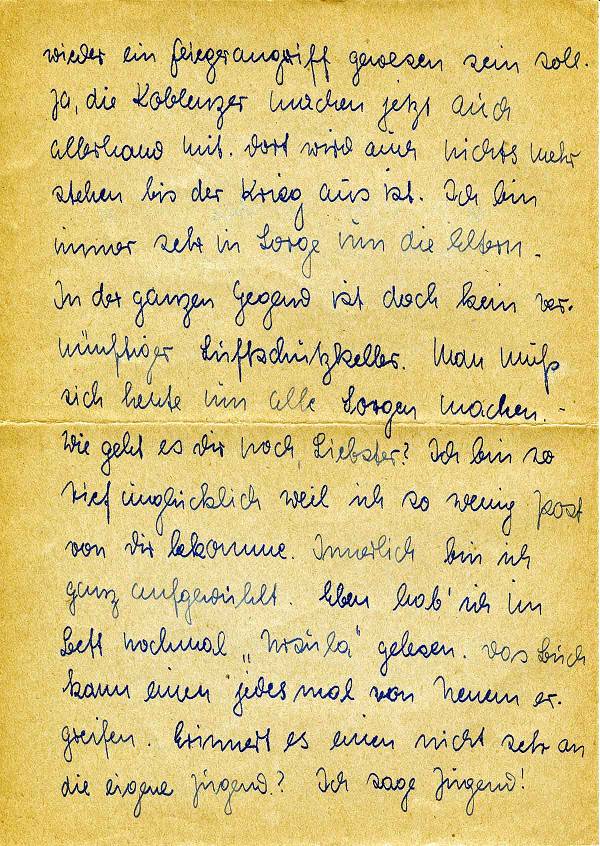 wieder ein Fliegerangriff gewesen sein soll.
Ja, die Koblenzer machen jetzt auch
allerhand mit. Dort wird auch nichts mehr
stehen bis der Krieg aus ist. Ich bin
immer sehr in Sorge um die Eltern.
In der ganzen Gegend ist doch kein ver-
nünftiger Luftschutzkeller. Man muß
sich heute um alle Sorgen machen. -
Wie geht es dir noch, Liebster? Ich bin so
tief unglücklich weil ich so wenig Post
von dir bekomme. Innerlich bin ich
ganz aufgewühlt. Eben hab' ich im
Bett nochmal „Ursula" gelesen. Das Buch
kann einen jedesmal von Neuem er-
greifen. Erinnert es einen nicht sehr an
die eigene Jugend? Ich sage Jugend!